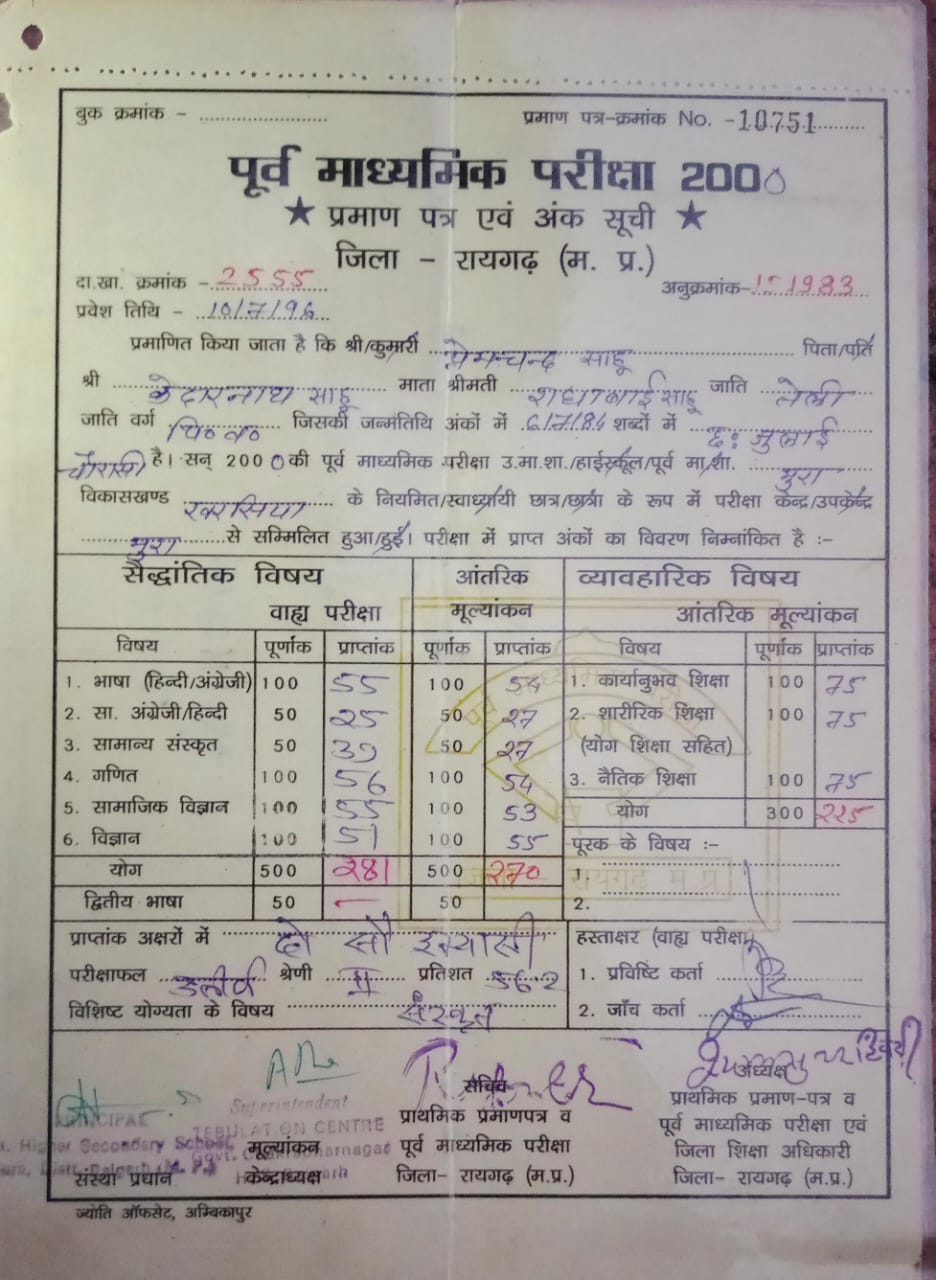 बुक क्रमांक - ........................
प्रमाण पत्र-क्रमांक No. -10751
पूर्व माध्यमिक परीक्षा 2000
★ प्रमाण पत्र एवं अंक सूची ★
जिला - रायगढ़ (म. प्र.)
दा.खा. क्रमांक - 2555
अनुक्रमांक- 151983
प्रवेश तिथि - 10/7/96
प्रमाणित किया जाता है कि श्री/कुमारी प्रेमचन्द साहू पिता/पति
श्री केदारनाथ साहू माता श्रीमती साहू जाति तेली
जाति वर्ग पि०व० जिसकी जन्मतिथि अंकों में 6/7/84 शब्दों में छः जुलाई
चौरासी है। सन् 2000 की पूर्व माध्यमिक परीक्षा उ.मा.शा./हाईस्कूल/पूर्व मा.शा.
विकासखण्ड खरसिया के नियमित/स्वाध्यायी छात्र/छात्रा के रूप में परीक्षा केन्द्र/उपकेन्द्र
से सम्मिलित हुआ/हुई। परीक्षा में प्राप्त अंकों का विवरण निम्नांकित है :-
सैद्धांतिक विषय आंतरिक व्यावहारिक विषय
वाह्य परीक्षा मूल्यांकन आंतरिक मूल्यांकन
विषय पूर्णांक प्राप्तांक पूर्णांक प्राप्तांक विषय पूर्णांक प्राप्तांक
1. भाषा (हिन्दी/अंग्रेजी) 100 55 100 54 1. कार्यानुभव शिक्षा 100 75
2. सा. अंग्रेजी/हिन्दी 50 25 50 27 2. शारीरिक शिक्षा 100 75
3. सामान्य संस्कृत 50 39 50 27 (योग शिक्षा सहित)
4. गणित 100 56 100 54 3. नैतिक शिक्षा 100 75
5. सामाजिक विज्ञान 100 55 100 53 योग 300 225
6. विज्ञान 100 51 100 55 पूरक के विषय :-
योग 500 281 500 270 1.
द्वितीय भाषा 50 — 50 2.
प्राप्तांक अक्षरों में दो सौ इक्यासी हस्ताक्षर (वाह्य परीक्षा)
परीक्षाफल उत्तीर्ण श्रेणी II प्रतिशत 56.2 1. प्रविष्टि कर्ता
विशिष्ट योग्यता के विषय संस्कृत 2. जाँच कर्ता
PRINCIPAL
Higher Secondary School
Superintendent
TEBULATION CENTRE
सचिव
अध्यक्ष
मूल्यांकन प्राथमिक प्रमाणपत्र व प्राथमिक प्रमाण-पत्र व
पूर्व माध्यमिक परीक्षा पूर्व माध्यमिक परीक्षा एवं
जिला शिक्षा अधिकारी
संस्था प्रधान केन्द्राध्यक्ष जिला- रायगढ़ (म.प्र.) जिला- रायगढ़ (म.प्र.)
ज्योति ऑफसेट, अम्बिकापुर